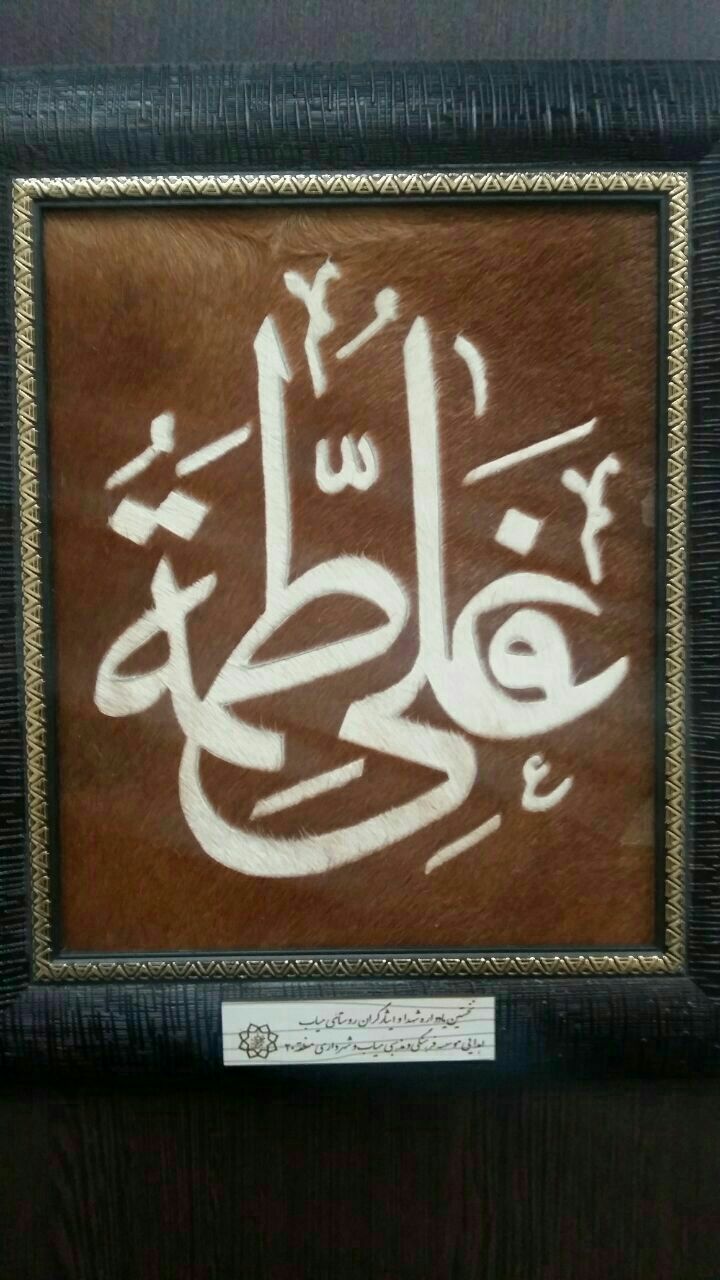 علی فاطمة
نخستین یادواره شهدا و ایثارگران روستای میاب
اهدایی موسسه فرهنگی و مذهبی میاب و شهرداری منطقه ۲۰